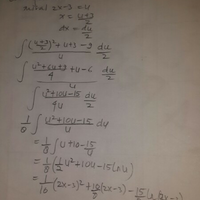 2x-3 = u
x = \frac{u+3}{2}
dx = \frac{du}{2}
∫ \frac{(\frac{u+3}{2})^2 + u+3 - 9}{u} \frac{du}{2}
∫ \frac{\frac{u^2+6u+9}{4} + u - 6}{u} \frac{du}{2}
∫ \frac{u^2+10u-15}{4u} \frac{du}{2}
\frac{1}{8} ∫ \frac{u^2+10u-15}{u} du
= \frac{1}{8} ∫ u+10-\frac{15}{u}
= \frac{1}{8} (\frac{1}{2}u^2+10u-15 ln u)
= \frac{1}{16} (2x-3)^2 + \frac{10}{8}(2x-3) - \frac{15}{8}